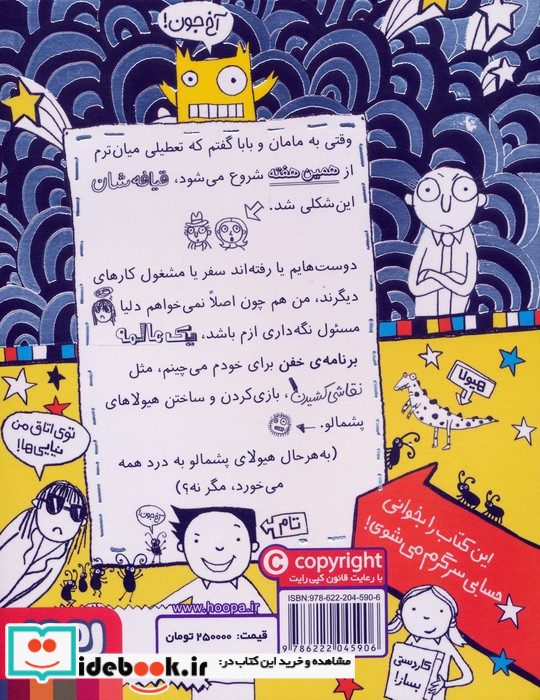 آخ جون!
وقتی به مامان و بابا گفتم که تعطیلی میان‌ترم
از همین هفته شروع می‌شود، قیافه‌شان
این‌شکلی شد.
دوست‌هایم یا رفته‌اند سفر یا مشغول کارهای
دیگرند، من هم چون اصلاً نمی‌خواهم دلیا
مسئول نگه‌داری ازم باشد، یک عالمه
برنامه‌ی خفن برای خودم می‌چینم، مثل
نقاشی کشیدن، بازی‌کردن و ساختن هیولاهای
پشمالو.
(به‌هرحال هیولای پشمالو به درد همه
می‌خورد، مگر نه؟)
هیولا
توی اتاق من
نیایی‌ها!
آخ‌جون!
تام
این کتاب را بخوانی
حسابی سرگرم می‌شوی!
کاردستی
بساز!
© copyright
با رعایت قانون کپی رایت
ISBN:978-622-204-590-6
9786222045906
www.hoopa.ir
قیمت: ۲۵۰۰۰۰ تومان
مشاهده و خرید این کتاب در:
iidebook.ir